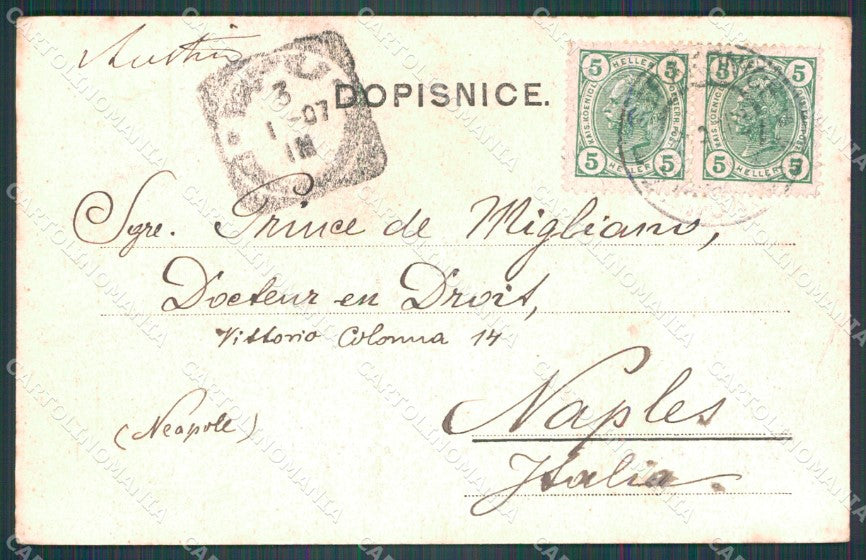 Austria
3
1 07
1M
DOPISNICE.
5 HELLER 5
KAIS. KOENIGL. OESTERR. POST.
5 HELLER 5
5 5
5 HELLER 5
Sgre. Prince de Migliano,
Docteur en Droit,
Vittorio Colonna 14
(Neapole)
Naples
Italia.
CARTOLINOMANIA